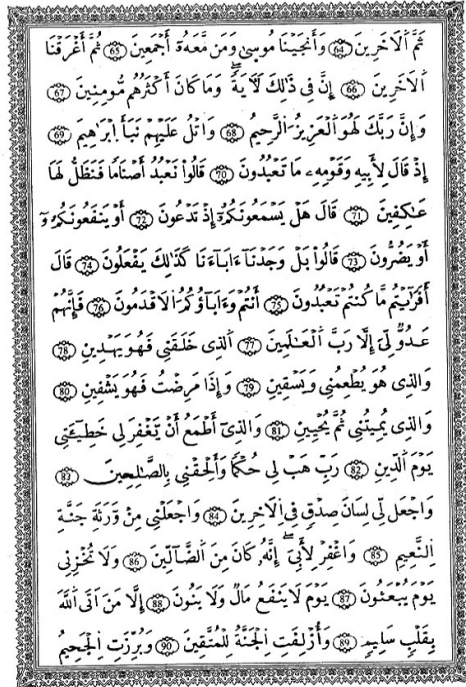 ثَمَّ اَ۬لَاخَرِينَ (64) وَأَنجَيْنَا مُوس۪ىٰ وَمَن مَّعَهُۥٓ أَجْمَعِينَ (65) ثُمَّ أَغْرَقْنَا
اَ۬لَاخَرِينَ (66) إِنَّ فِے ذَٰلِكَ لَأٓيَةٗۖ وَمَا كَانَ أَكْثَرُهُم مُّومِنِينَ (67)
وَإِنَّ رَبَّكَ لَهُوَ اَ۬لْعَزِيزُ اُ۬لرَّحِيمُ (68) وَاتْلُ عَلَيْهِمْ نَبَأَ اِ۬بْرَٰهِيمَ (69)
إِذْ قَالَ لِأَبِيهِ وَقَوْمِهِۦ مَا تَعْبُدُونَ (70) قَالُوا۟ نَعْبُدُ أَصْنَامٗا فَنَظَلُّ لَهَا
عَٰكِفِينَ (71) قَالَ هَلْ يَسْمَعُونَكُمُۥٓ إِذْ تَدْعُونَ (72) أَوْ يَنفَعُونَكُمُۥٓ
أَوْ يَضُرُّونَ (73) قَالُوا۟ بَلْ وَجَدْنَآ ءَابَآءَنَا كَذَٰلِكَ يَفْعَلُونَ (74) قَالَ
أَفَرَٰٓيْتُم مَّا كُنتُمْ تَعْبُدُونَ (75) أَنتُمْ وَءَابَآؤُكُمُ اُ۬لَاقْدَمُونَ (76) فَإِنَّهُمْ
عَدُوّٞ لِّيَ إِلَّا رَبَّ اَ۬لْعَٰلَمِينَ (77) اَ۬لذِے خَلَقَنِے فَهُوَ يَهْدِينِ (78)
وَالذِے هُوَ يُطْعِمُنِے وَيَسْقِينِ (79) وَإِذَا مَرِضْتُ فَهُوَ يَشْفِينِ (80)
وَالذِے يُمِيتُنِے ثُمَّ يُحْيِينِ (81) وَالذِےٓ أَطْمَعُ أَنْ يَّغْفِرَ لِے خَطِيٓـَٔتِے
يَوْمَ اَ۬لدِّينِ (82) رَبِّ هَبْ لِے حُكْمٗا وَأَلْحِقْنِے بِالصَّٰلِحِينَ (83)
وَاجْعَل لِّے لِسَانَ صِدْقٖ فِے اِ۬لَاخِرِينَ (84) وَاجْعَلْنِے مِنْ وَّرَثَةِ جَنَّةِ
اِ۬لنَّعِيمِ (85) وَاغْفِرْ لِأَبِيَۖ إِنَّهُۥ كَانَ مِنَ اَ۬لضَّآلِّينَ (86) وَلَا تُخْزِنِے
يَوْمَ يُبْعَثُونَ (87) يَوْمَ لَا يَنفَعُ مَالٞ وَلَا بَنُونَ (88) إِلَّا مَنَ اَتَى اَ۬للَّهَ
بِقَلْبٖ سَلِيمٖ (89) وَأُزْلِفَتِ اِ۬لْجَنَّةُ لِلْمُتَّقِينَ (90) وَبُرِّزَتِ اِ۬لْجَحِيمُ